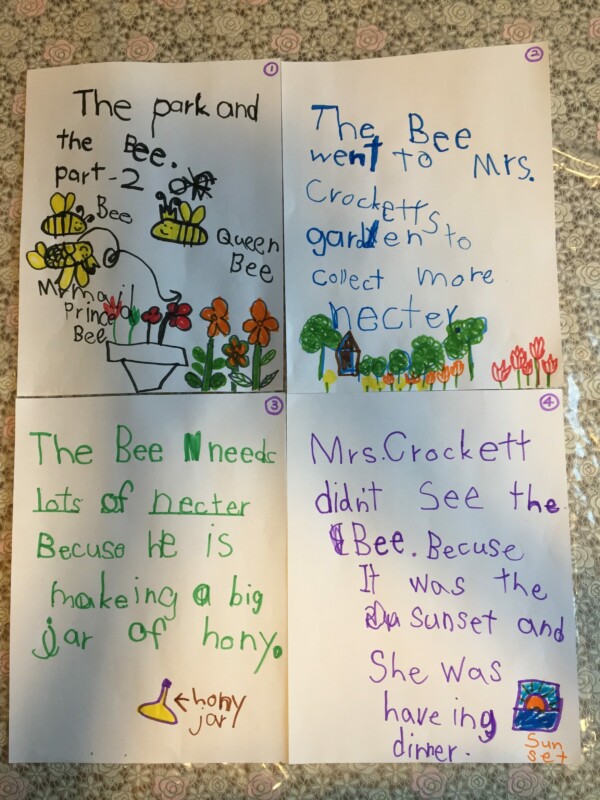 1
The park and
the Bee.
part-2
Bee
Queen
Bee
Prince
Bee
2
The Bee
went to Mrs.
Crocketts
garden to
collect more
necter
3
The Bee needs
lots of necter
Becuse he is
makeing a big
jar of hony.
hony
jar
4
Mrs. Crockett
didn't see the
Bee. Becuse
It was the
sunset and
She was
haveing
dinner.
Sun
set